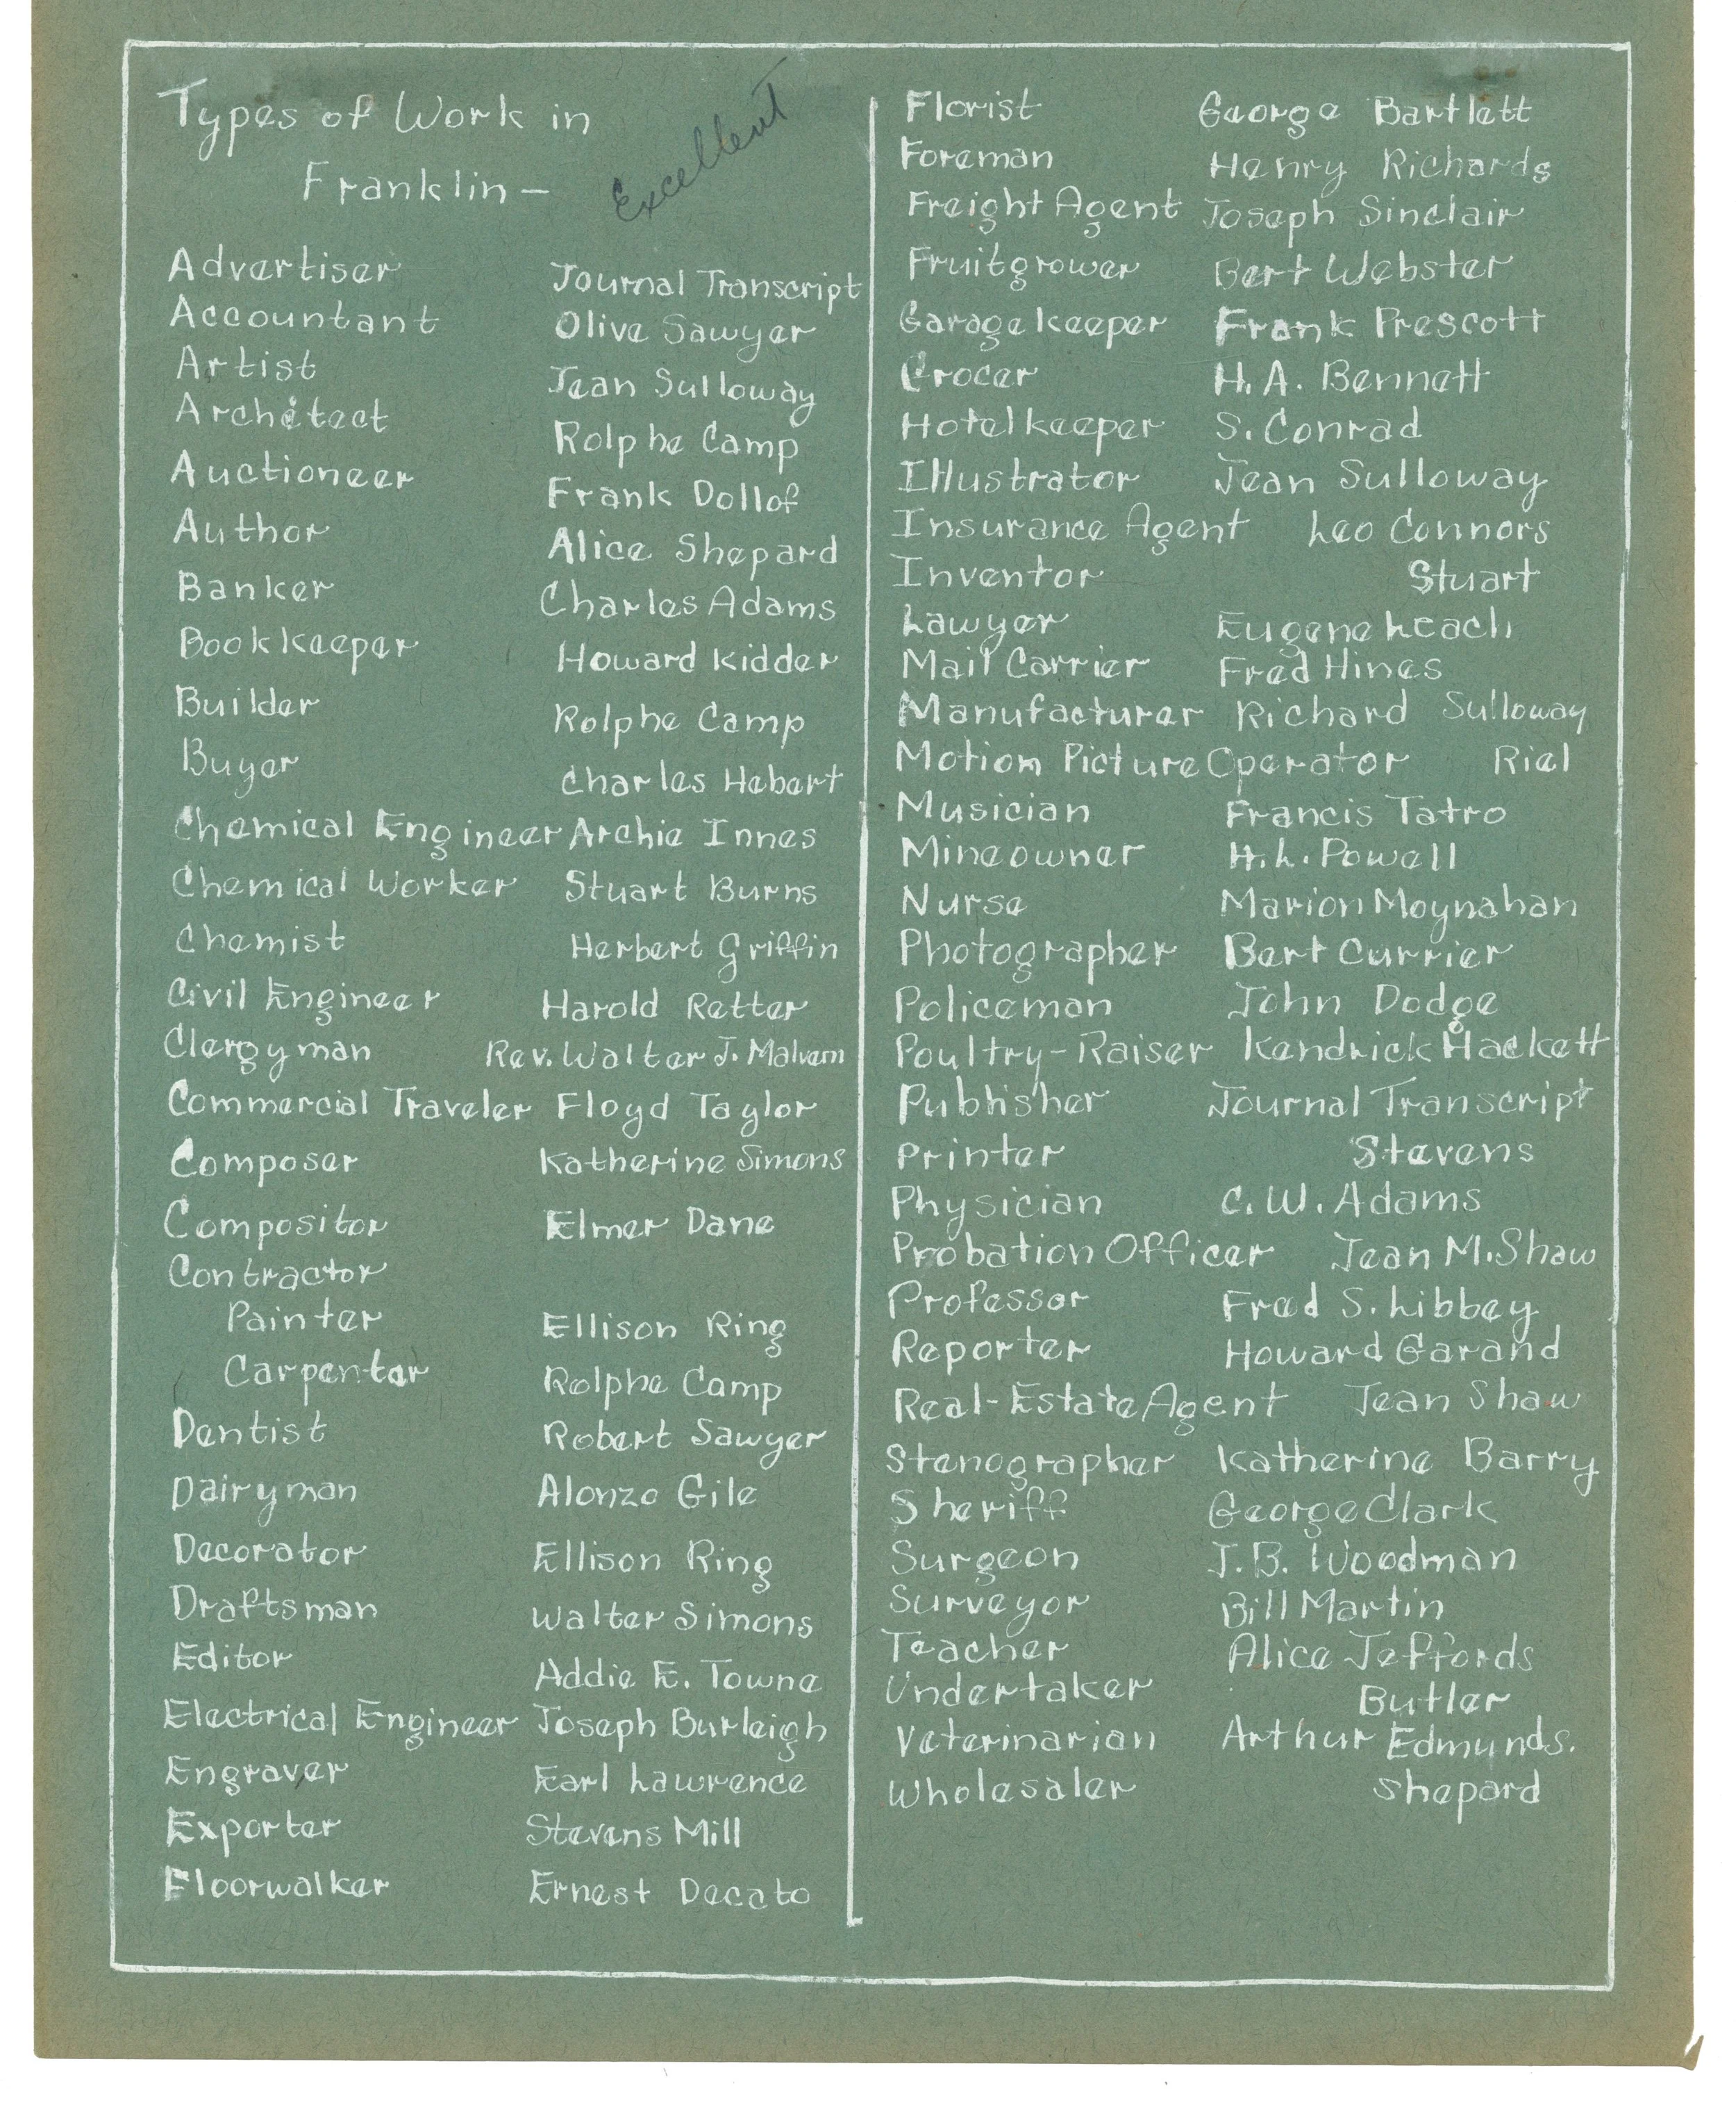 Types of Work in
Franklin –
Excellent
Advertiser Journal Transcript
Accountant Olive Sawyer
Artist Jean Sulloway
Architect Rolphe Camp
Auctioneer Frank Dollof
Author Alice Shepard
Banker Charles Adams
Bookkeeper Howard Kidder
Builder Rolphe Camp
Buyer Charles Hebert
Chemical Engineer Archie Innes
Chemical Worker Stuart Burns
Chemist Herbert Griffin
Civil Engineer Harold Retter
Clergyman Rev. Walter J. Malvern
Commercial Traveler Floyd Taylor
Composer Katherine Simons
Compositor Elmer Dane
Contractor
Painter Ellison Ring
Carpenter Rolphe Camp
Dentist Robert Sawyer
Dairyman Alonzo Gile
Decorator Ellison Ring
Draftsman Walter Simons
Editor Addie E. Towne
Electrical Engineer Joseph Burleigh
Engraver Earl Lawrence
Exporter Stevens Mill
Floorwalker Ernest Decato
Florist George Bartlett
Foreman Henry Richards
Freight Agent Joseph Sinclair
Fruitgrower Bert Webster
Garage keeper Frank Prescott
Grocer H. A. Bennett
Hotelkeeper S. Conrad
Illustrator Jean Sulloway
Insurance Agent Leo Connors
Inventor Stuart
Lawyer Eugene Leach
Mail Carrier Fred Hines
Manufacturer Richard Sulloway
Motion Picture Operator Riel
Musician Francis Tatro
Mineowner H. L. Powell
Nurse Marion Moynahan
Photographer Bert Currier
Policeman John Dodge
Poultry-Raiser Kendrick Hackett
Publisher Journal Transcript
Printer Stevens
Physician C. W. Adams
Probation Officer Jean M. Shaw
Professor Fred S. Libbey
Reporter Howard Garand
Real-Estate Agent Jean Shaw
Stenographer Katherine Barry
Sheriff George Clark
Surgeon J. B. Woodman
Surveyor Bill Martin
Teacher Alice Jeffords
Undertaker Butler
Veterinarian Arthur Edmunds.
Wholesaler Shepard